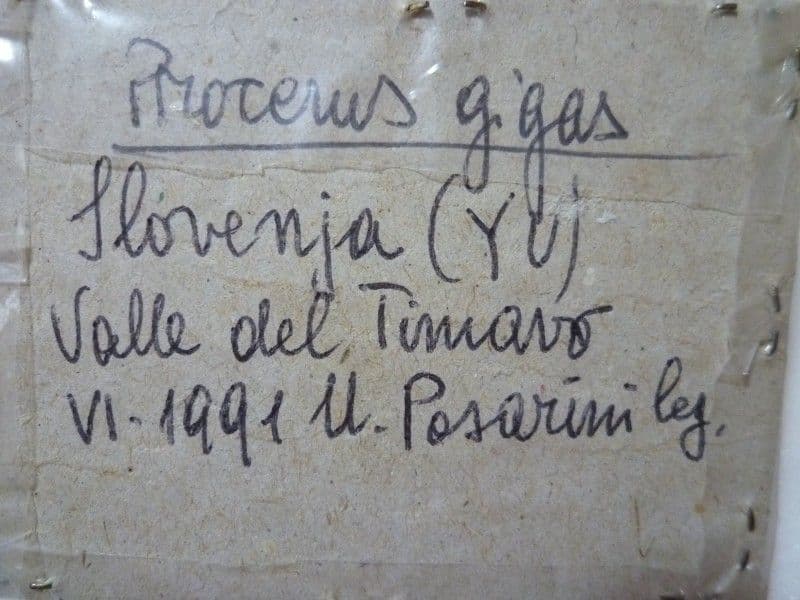 Procerus gigas
Slovenja (YU)
Valle del Timavo
VI-1991 M. Posarini leg.